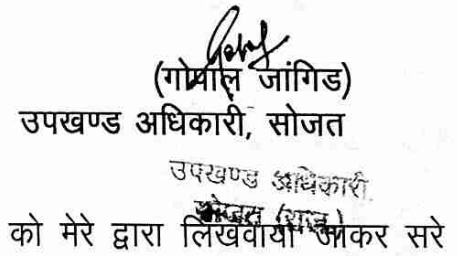 (गोपाल जांगिड)
उपखण्ड अधिकारी, सोजत
उपखण्ड अधिकारी
सोजत (राज.)
को मेरे द्वारा लिखवाया जाकर सरे